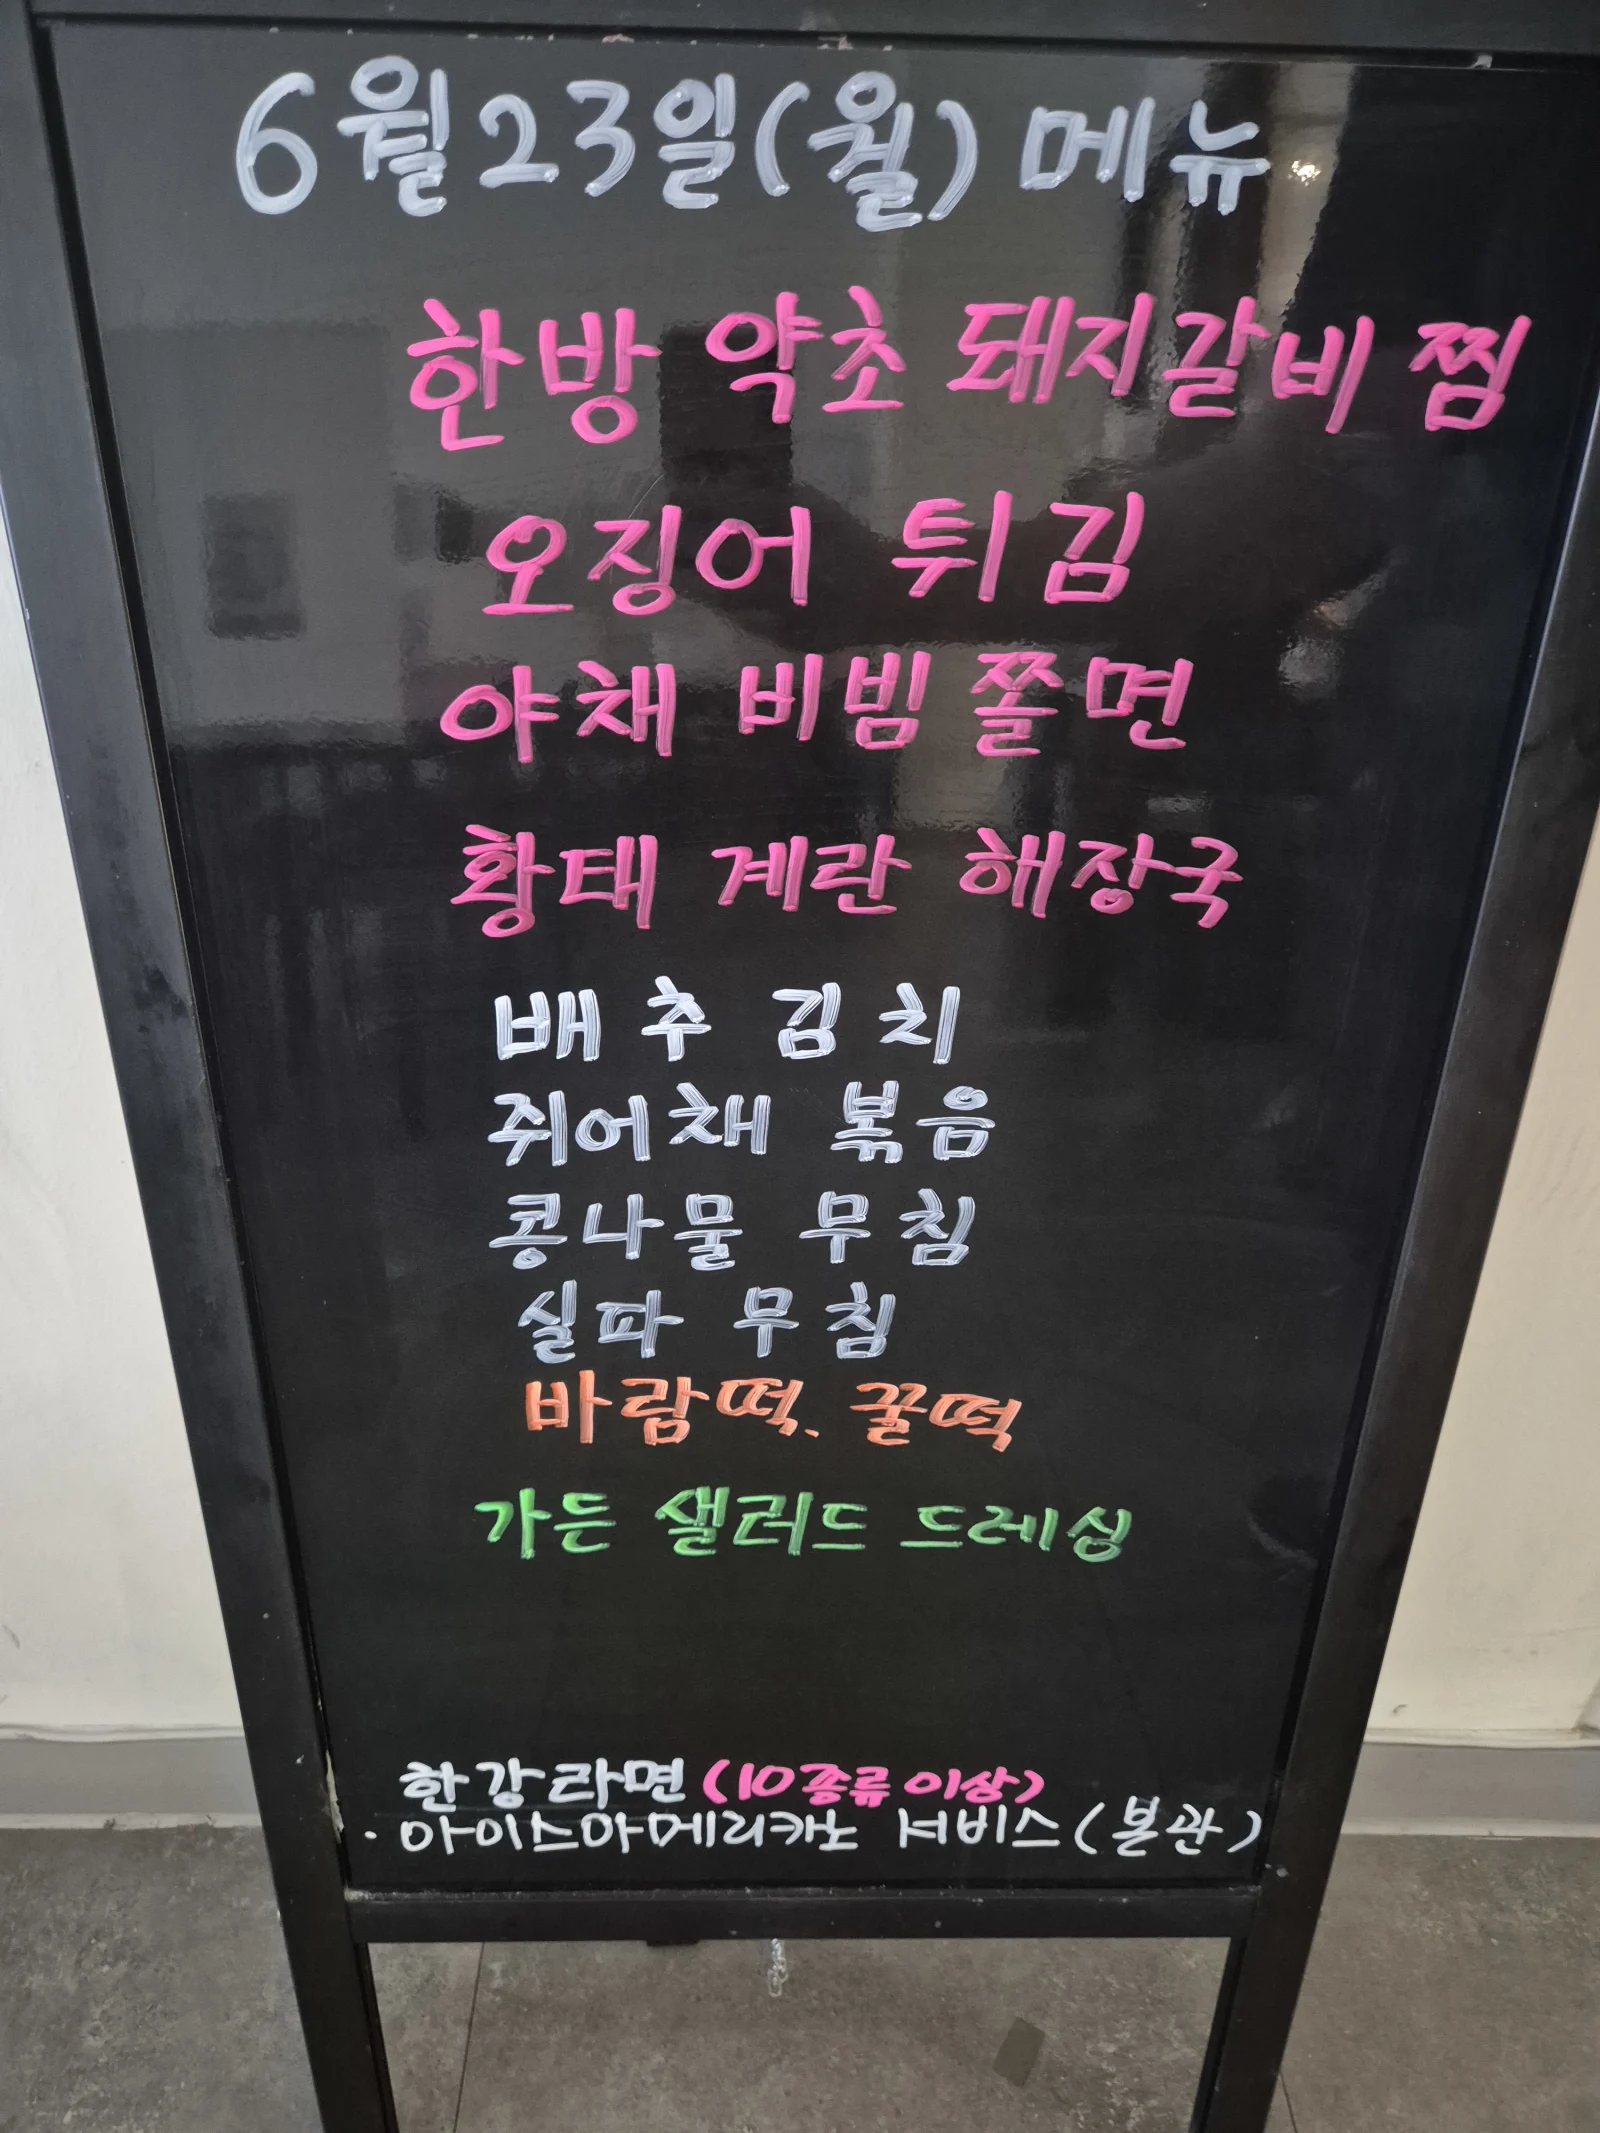 6월23일(월) 메뉴
한방 약초 돼지갈비 찜
오징어 튀김
야채 비빔 쫄면
황태 계란 해장국
배추 김치
쥐어채 볶음
콩나물 무침
실파 무침
바람떡. 꿀떡
가든 샐러드 드레싱
한강라면 (10종류 이상)
· 아이스아메리카노 서비스 (본관)